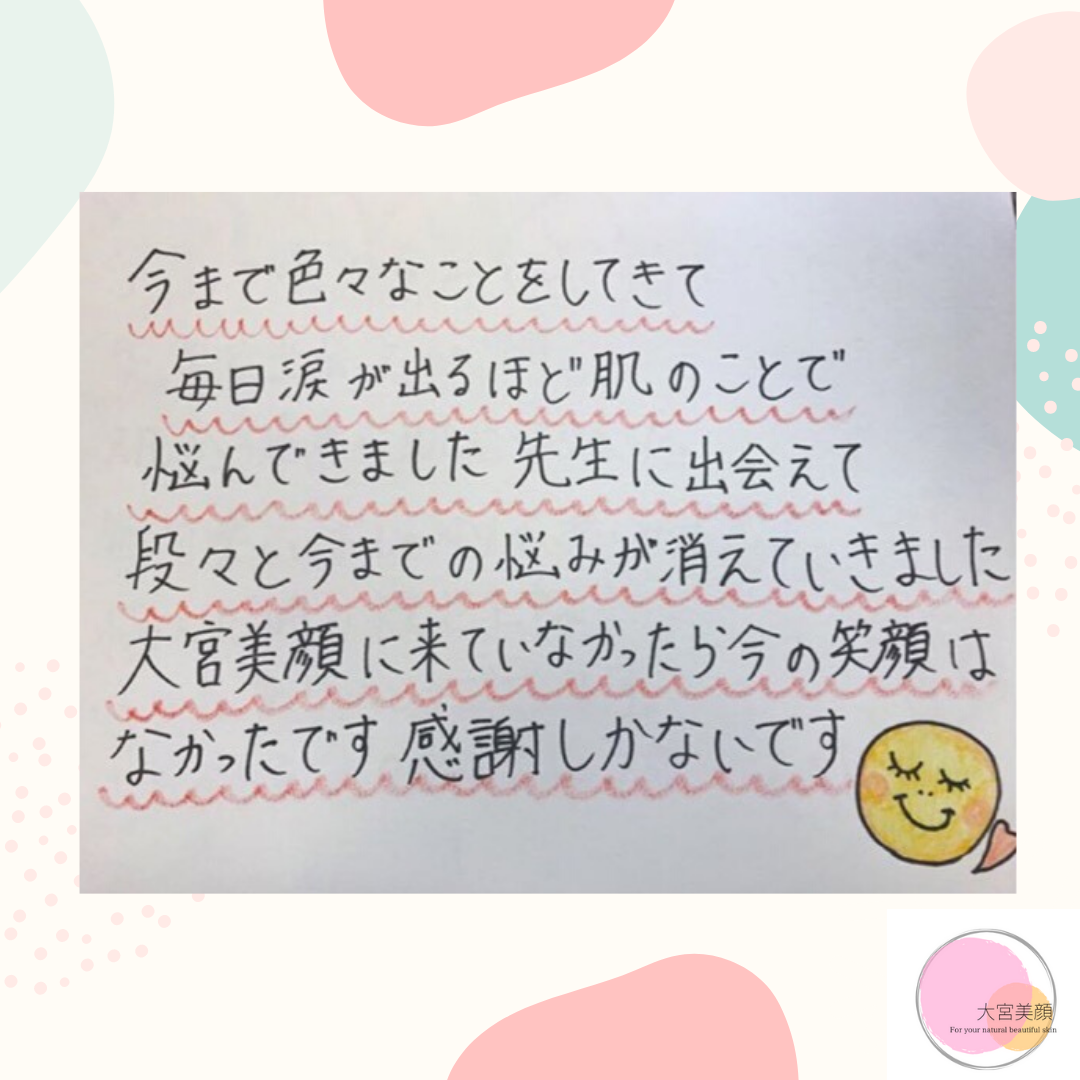 今まで色々なことをしてきて
毎日涙が出るほど肌のことで
悩んできました 先生に出会えて
段々と今までの悩みが消えていきました
大宮美顔に来ていなかったら今の笑顔は
なかったです 感謝しかないです
大宮美顔
For your natural beautiful skin